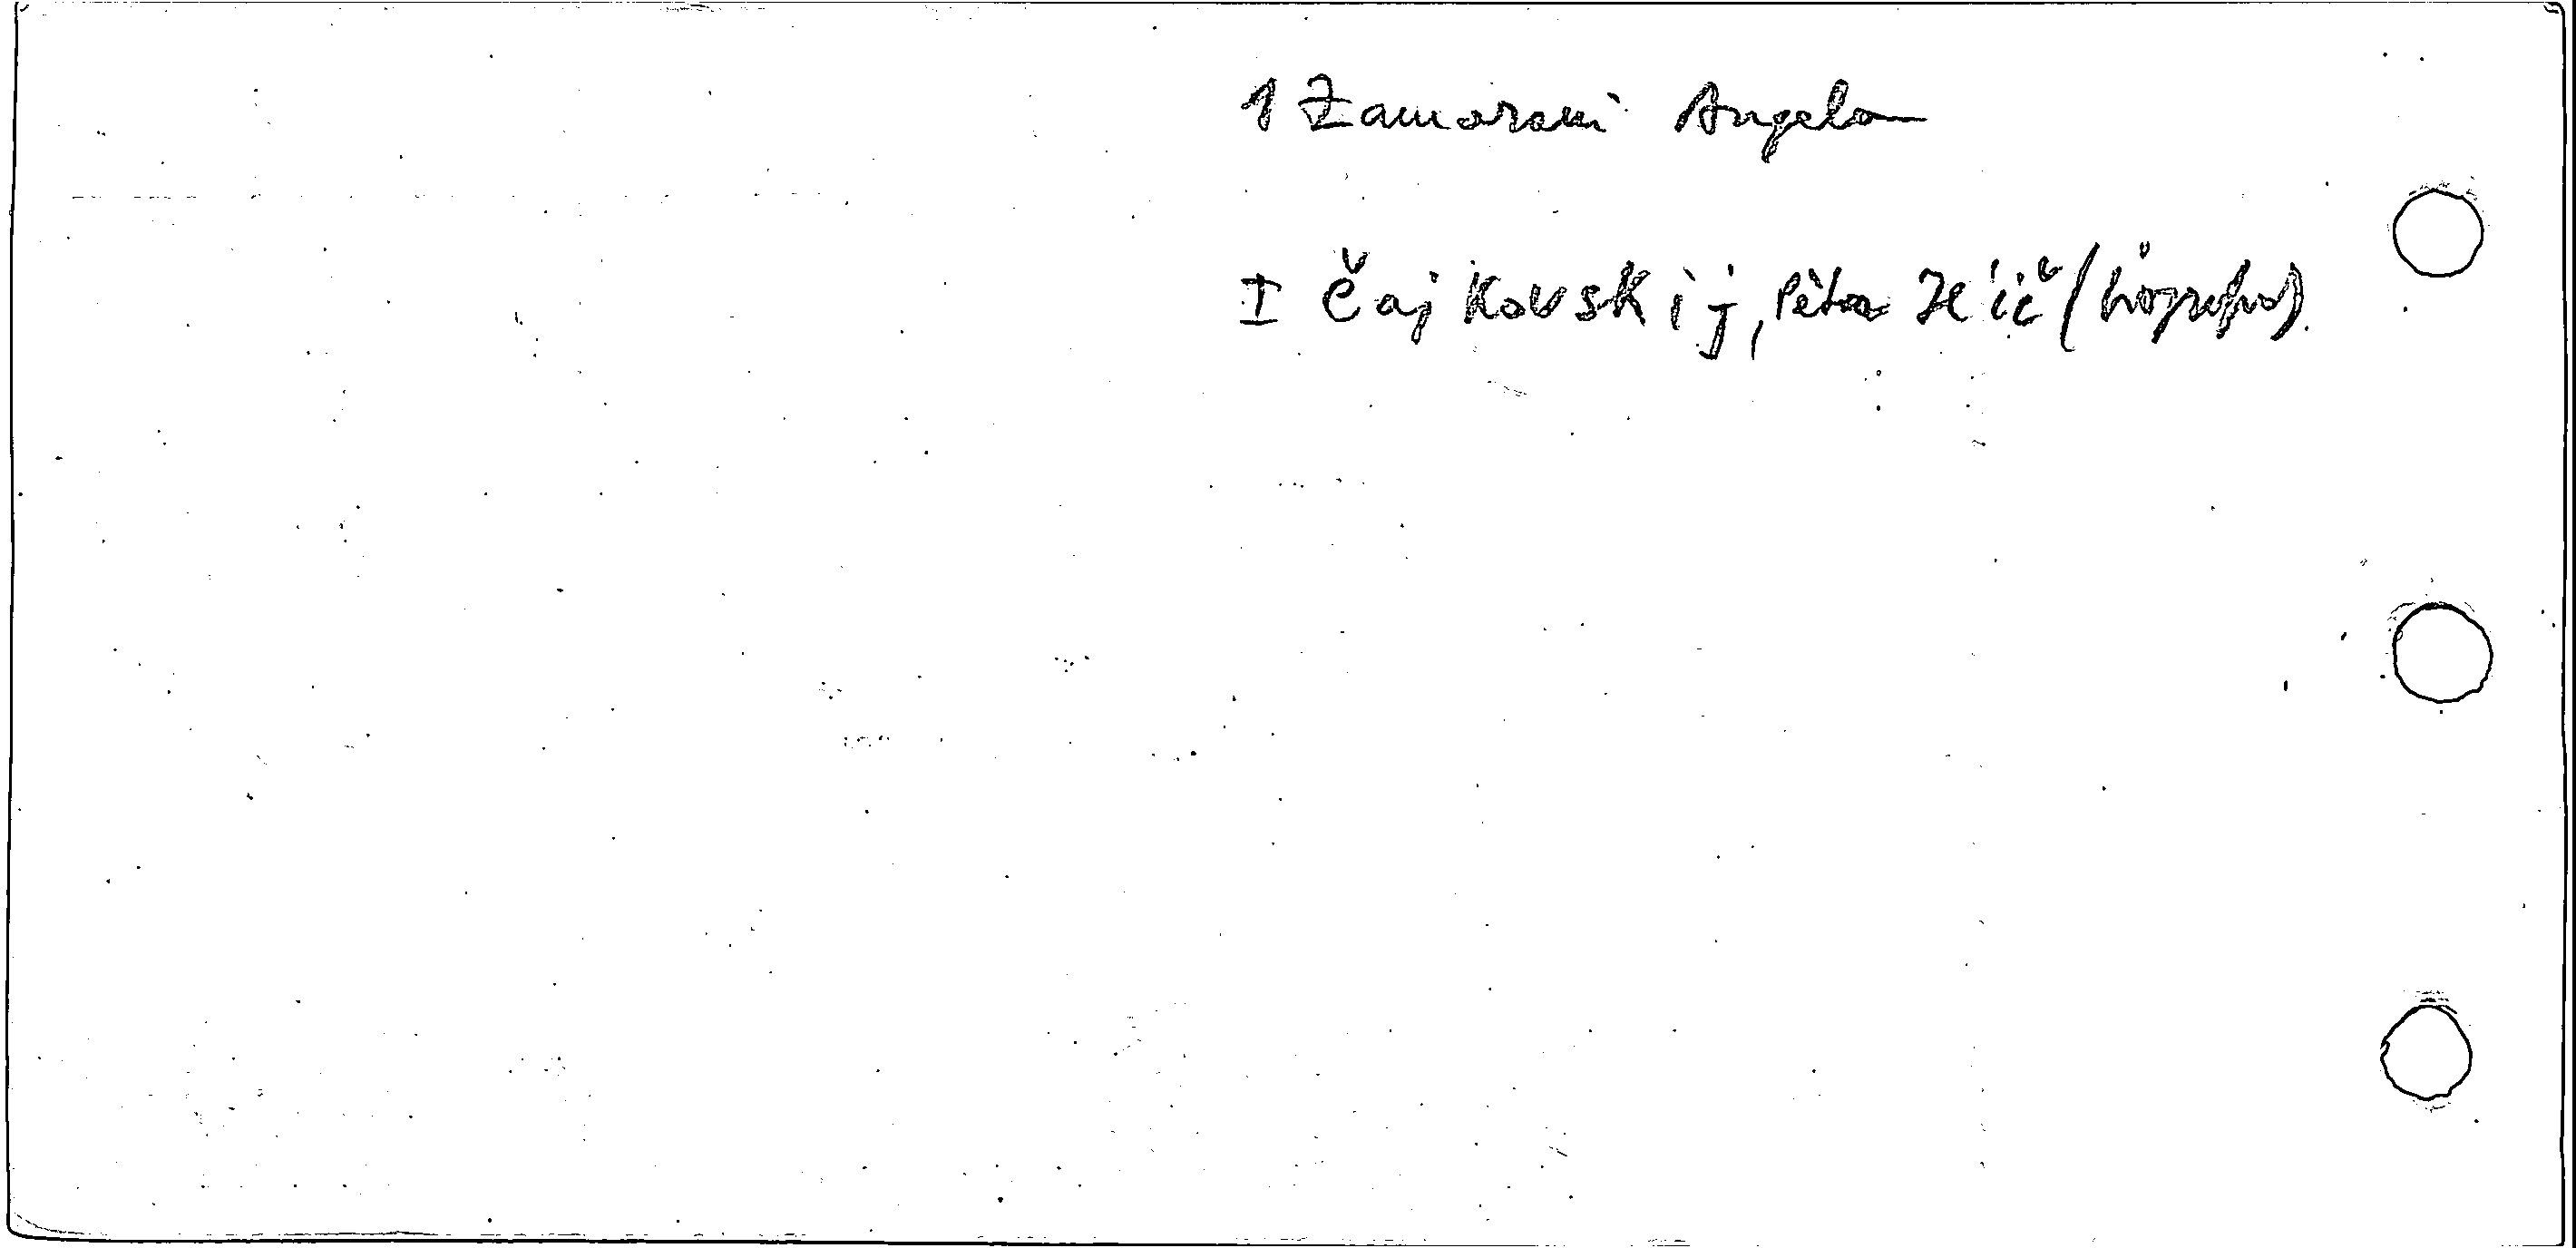 1 Zamorani Angelo
I Čajkovskij, Pëtr Il'ič (biografia)